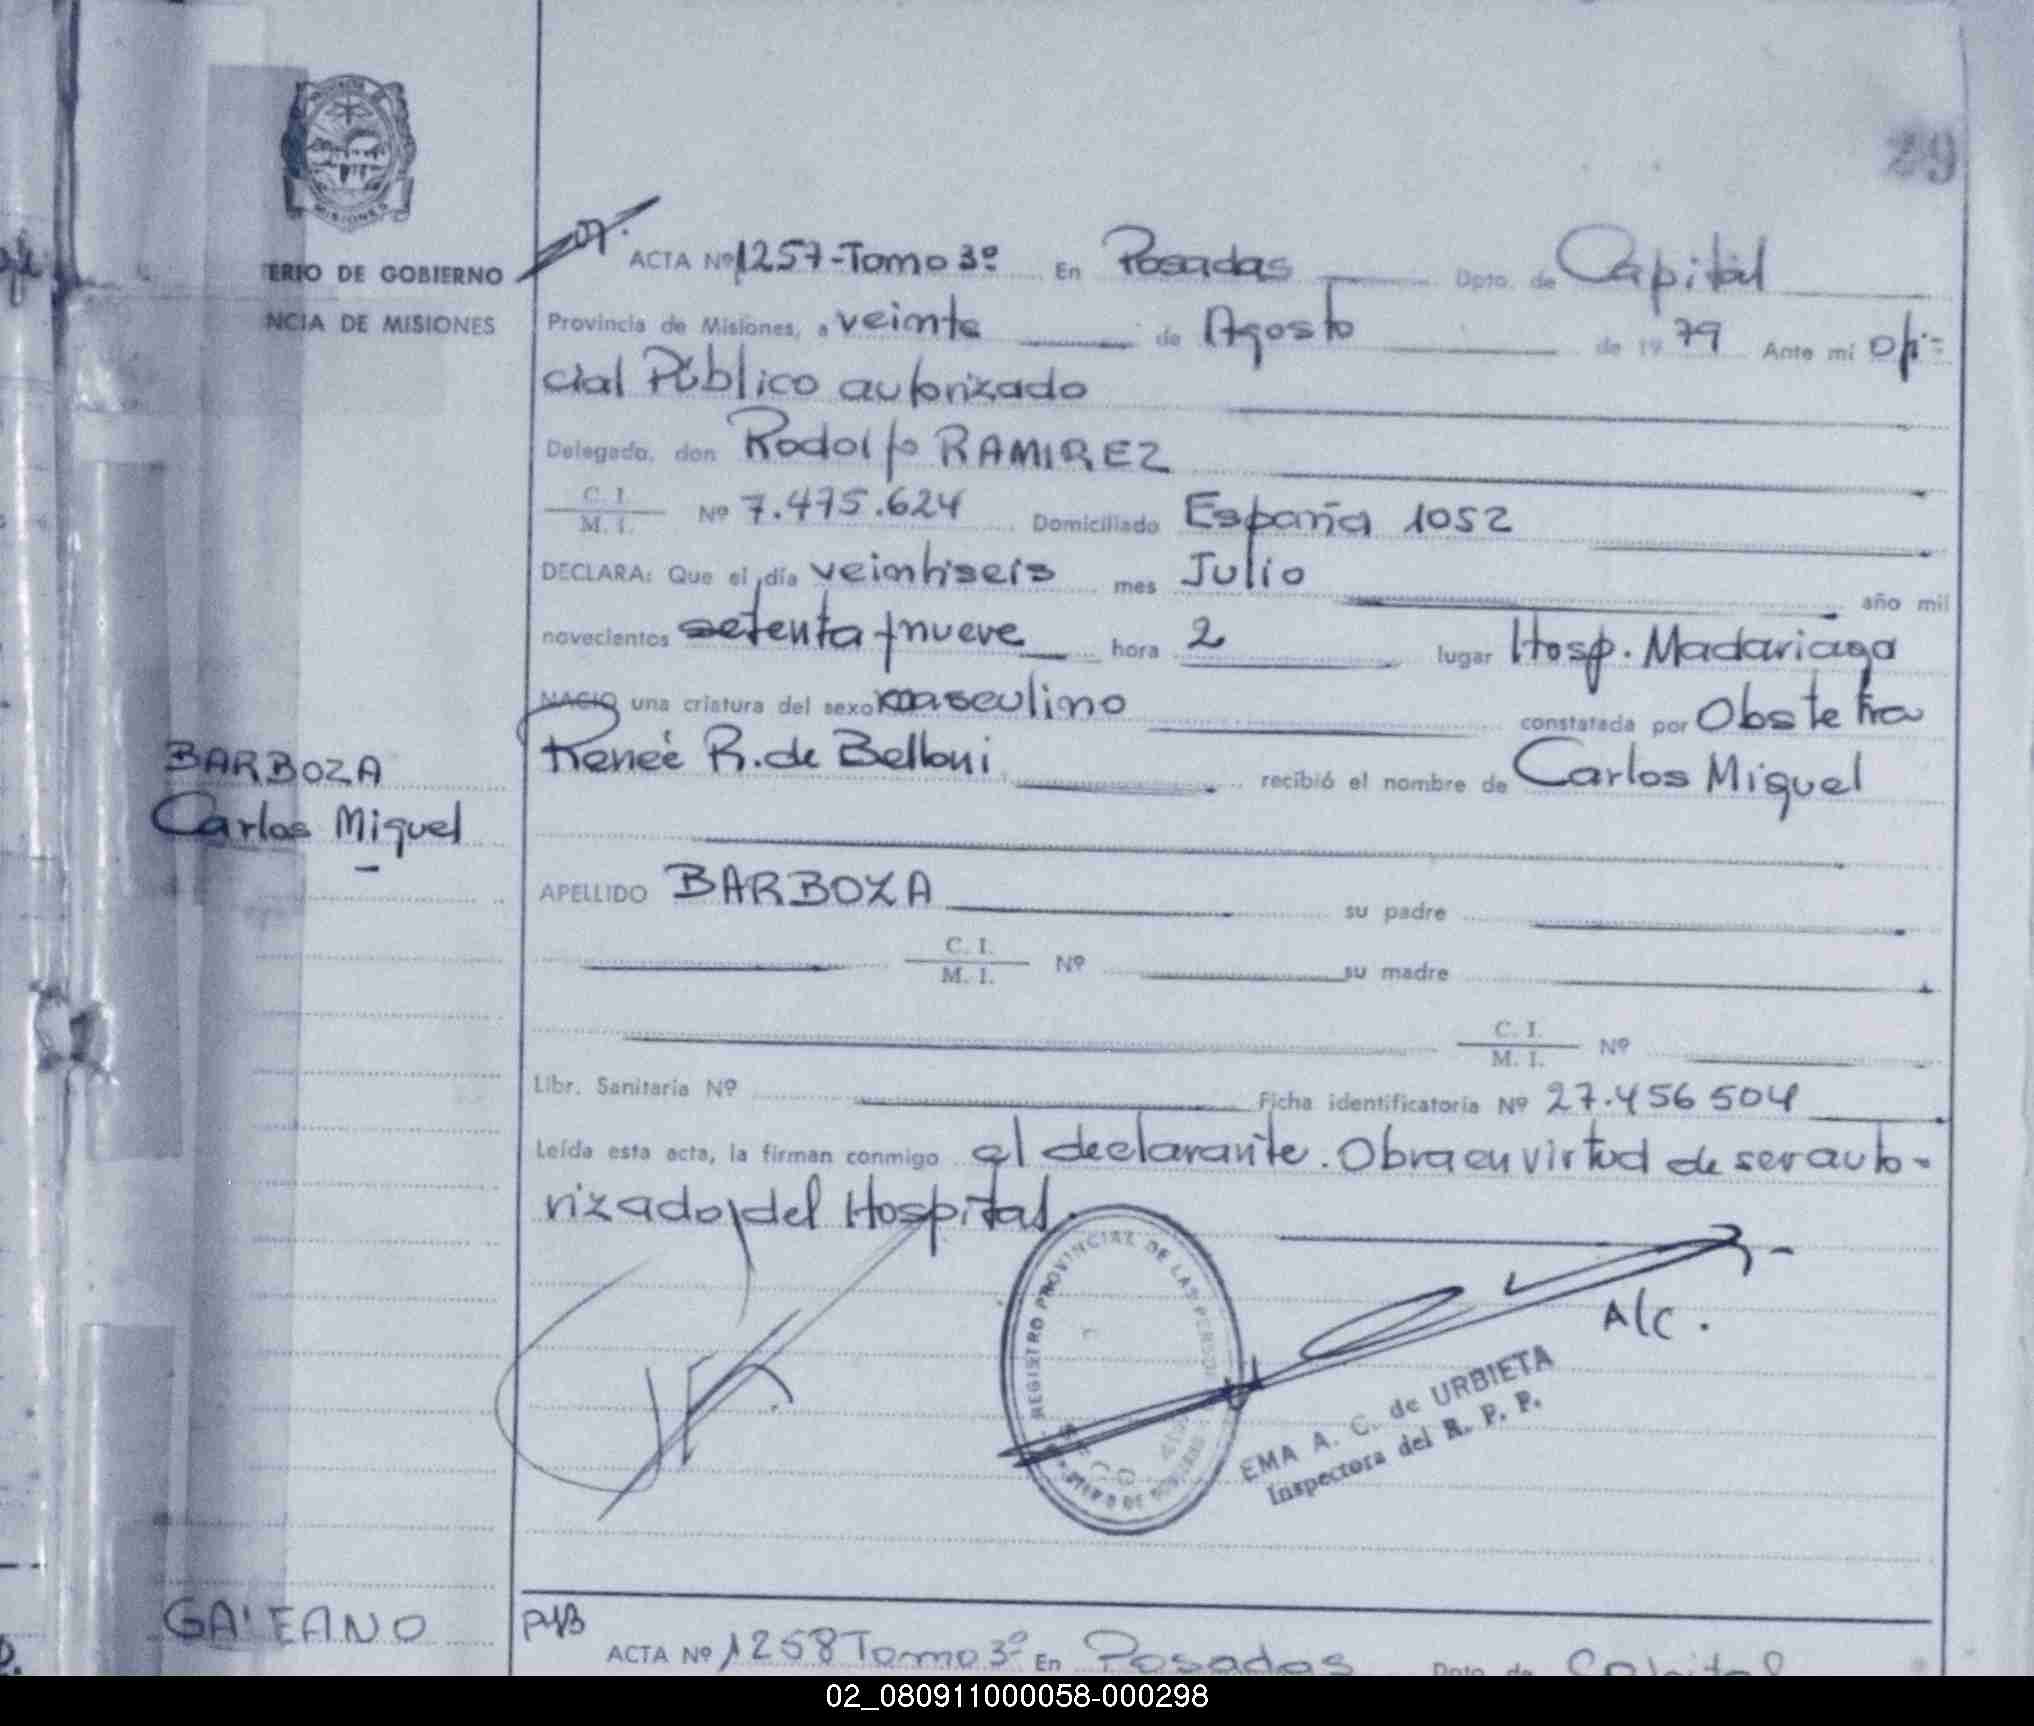 29
PROVINCIA
MISIONES
ERIO DE GOBIERNO
NCIA DE MISIONES
ACTA Nº 1257-Tomo 3º En Posadas Dpto. de Capital
Provincia de Misiones, a veinte de Agosto de 19 79 Ante mi ofi=
cial Público autorizado
Delegado, don Rodolfo RAMIREZ
C. I.
M. I. Nº 7.475.624 Domiciliado España 1052
DECLARA: Que el día veintiseis mes Julio año mil
novecientos setenta y nueve hora 2 lugar Hosp. Madariaga
NACIO una criatura del sexo masculino constatada por Obstetra
Reneé R. de Belloni recibió el nombre de Carlos Miguel
BARBOZA
Carlos Miguel
APELLIDO BARBOZA su padre
C. I.
M. I. Nº su madre
C. I.
M. I. Nº
Libr. Sanitaria Nº Ficha identificatoria Nº 27.456 504
Leída esta acta, la firman conmigo el declarante. Obra en virtud de ser auto-
rizado del Hospital.
REGISTRO PROVINCIAL DE LAS PERSO
A/C.
EMA A. C. de URBIETA
Inspectora del R. P. P.
GALEANO
ACTA Nº 1258 Tomo 3º En Posadas Dpto de Capital
02_080911000058-000298